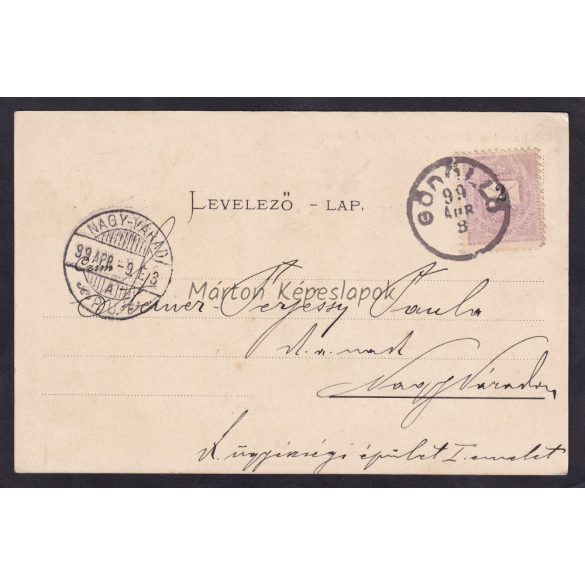 LEVELEZŐ - LAP.
GÖDÖLLŐ
99
APR
8
2
NAGY-VÁRAD
99 APR - 9
Czim
Márton Képeslapok
Terjessy Paula
Nagy Váradon
K. ügyészségi épület I. emelet